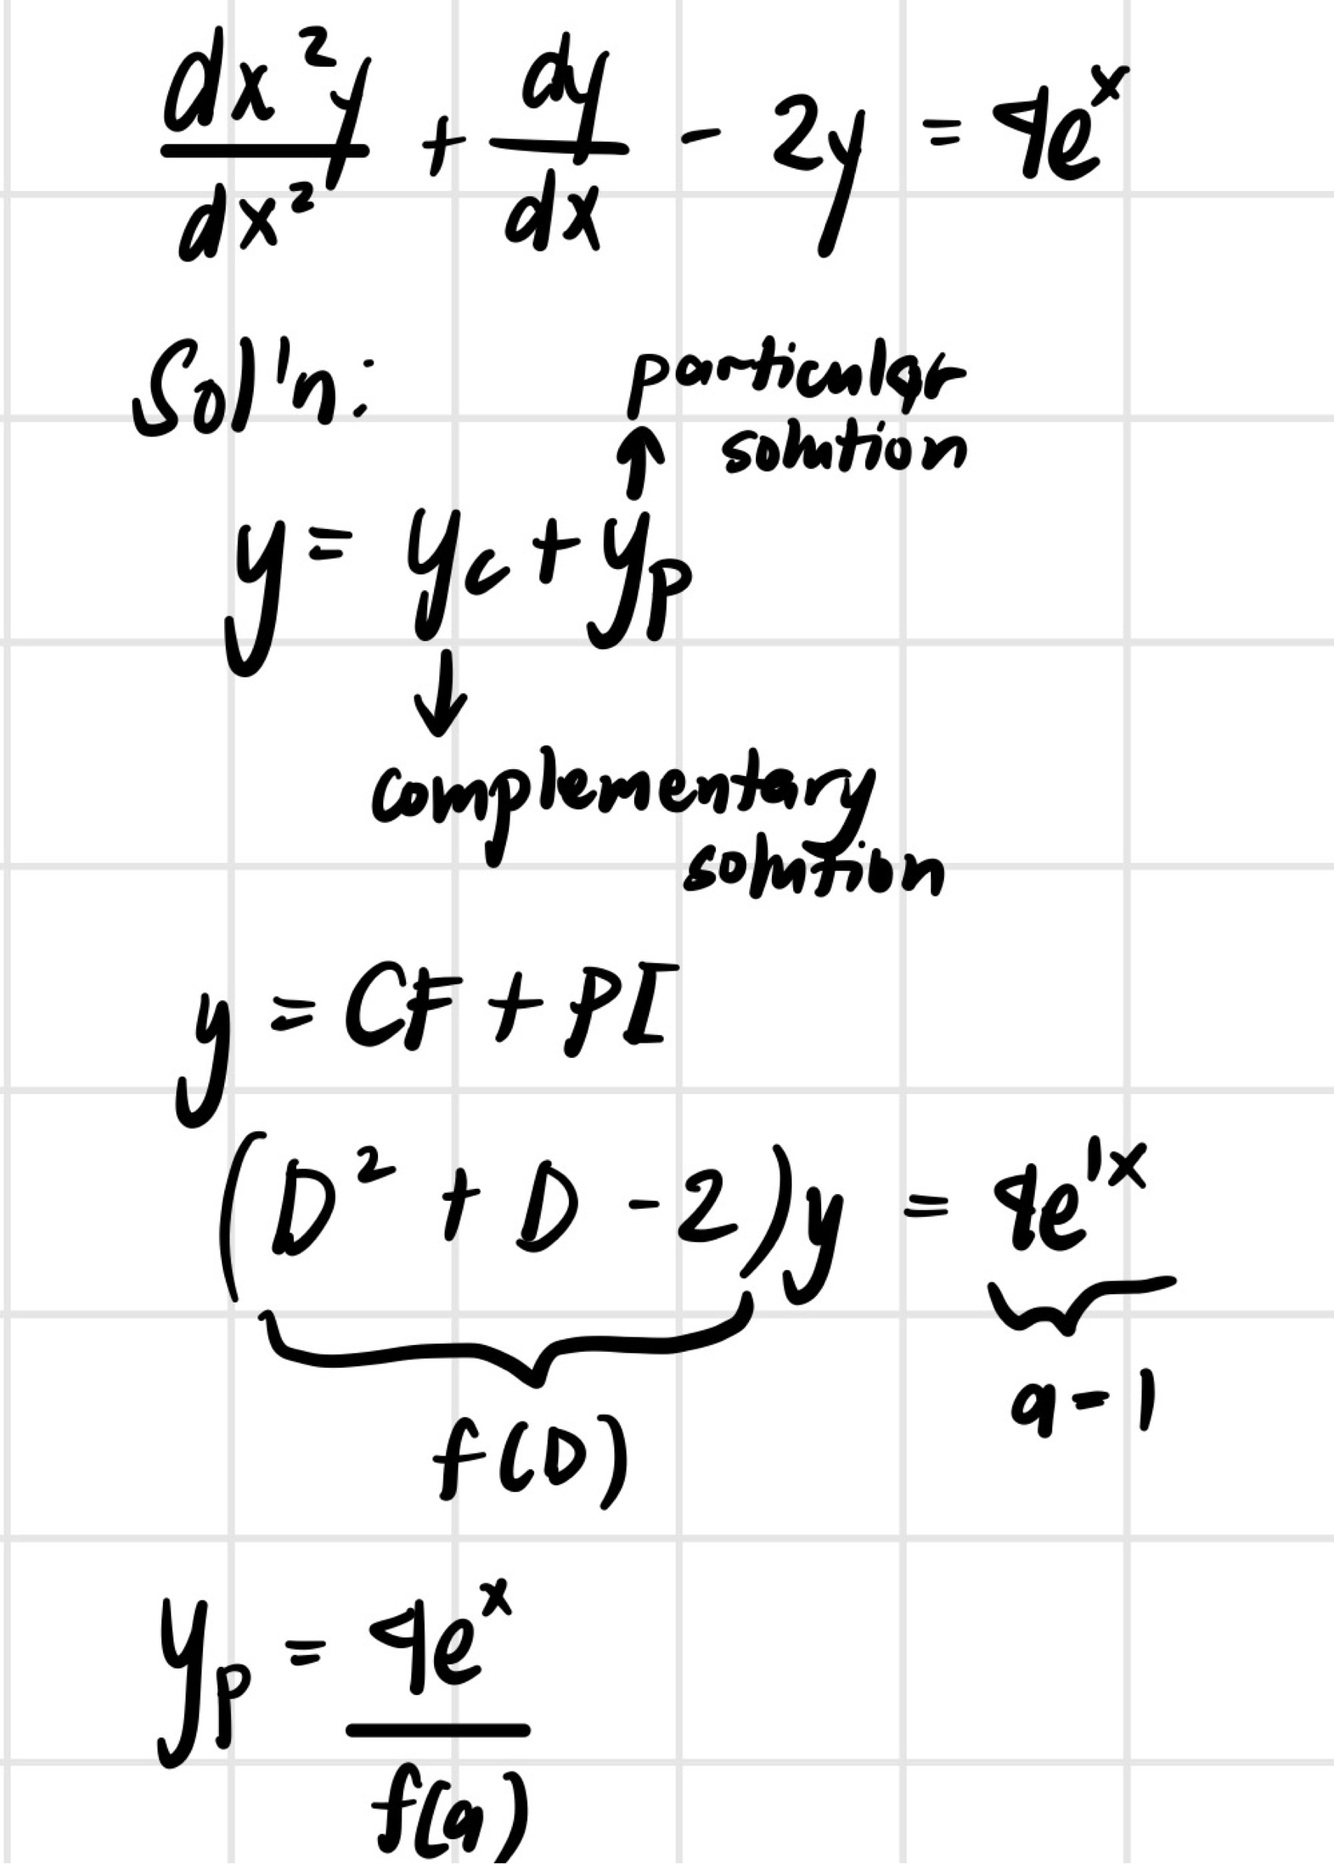 dx²y/dx² + dy/dx - 2y = 4eˣ
Sol'n:
particular
solution
↑
y = y_c + y_p
↓
complementary
solution
y = CF + PI
(D² + D - 2)y = 4e¹ˣ
f(D)
a = 1
y_p = 4eˣ/f(a)